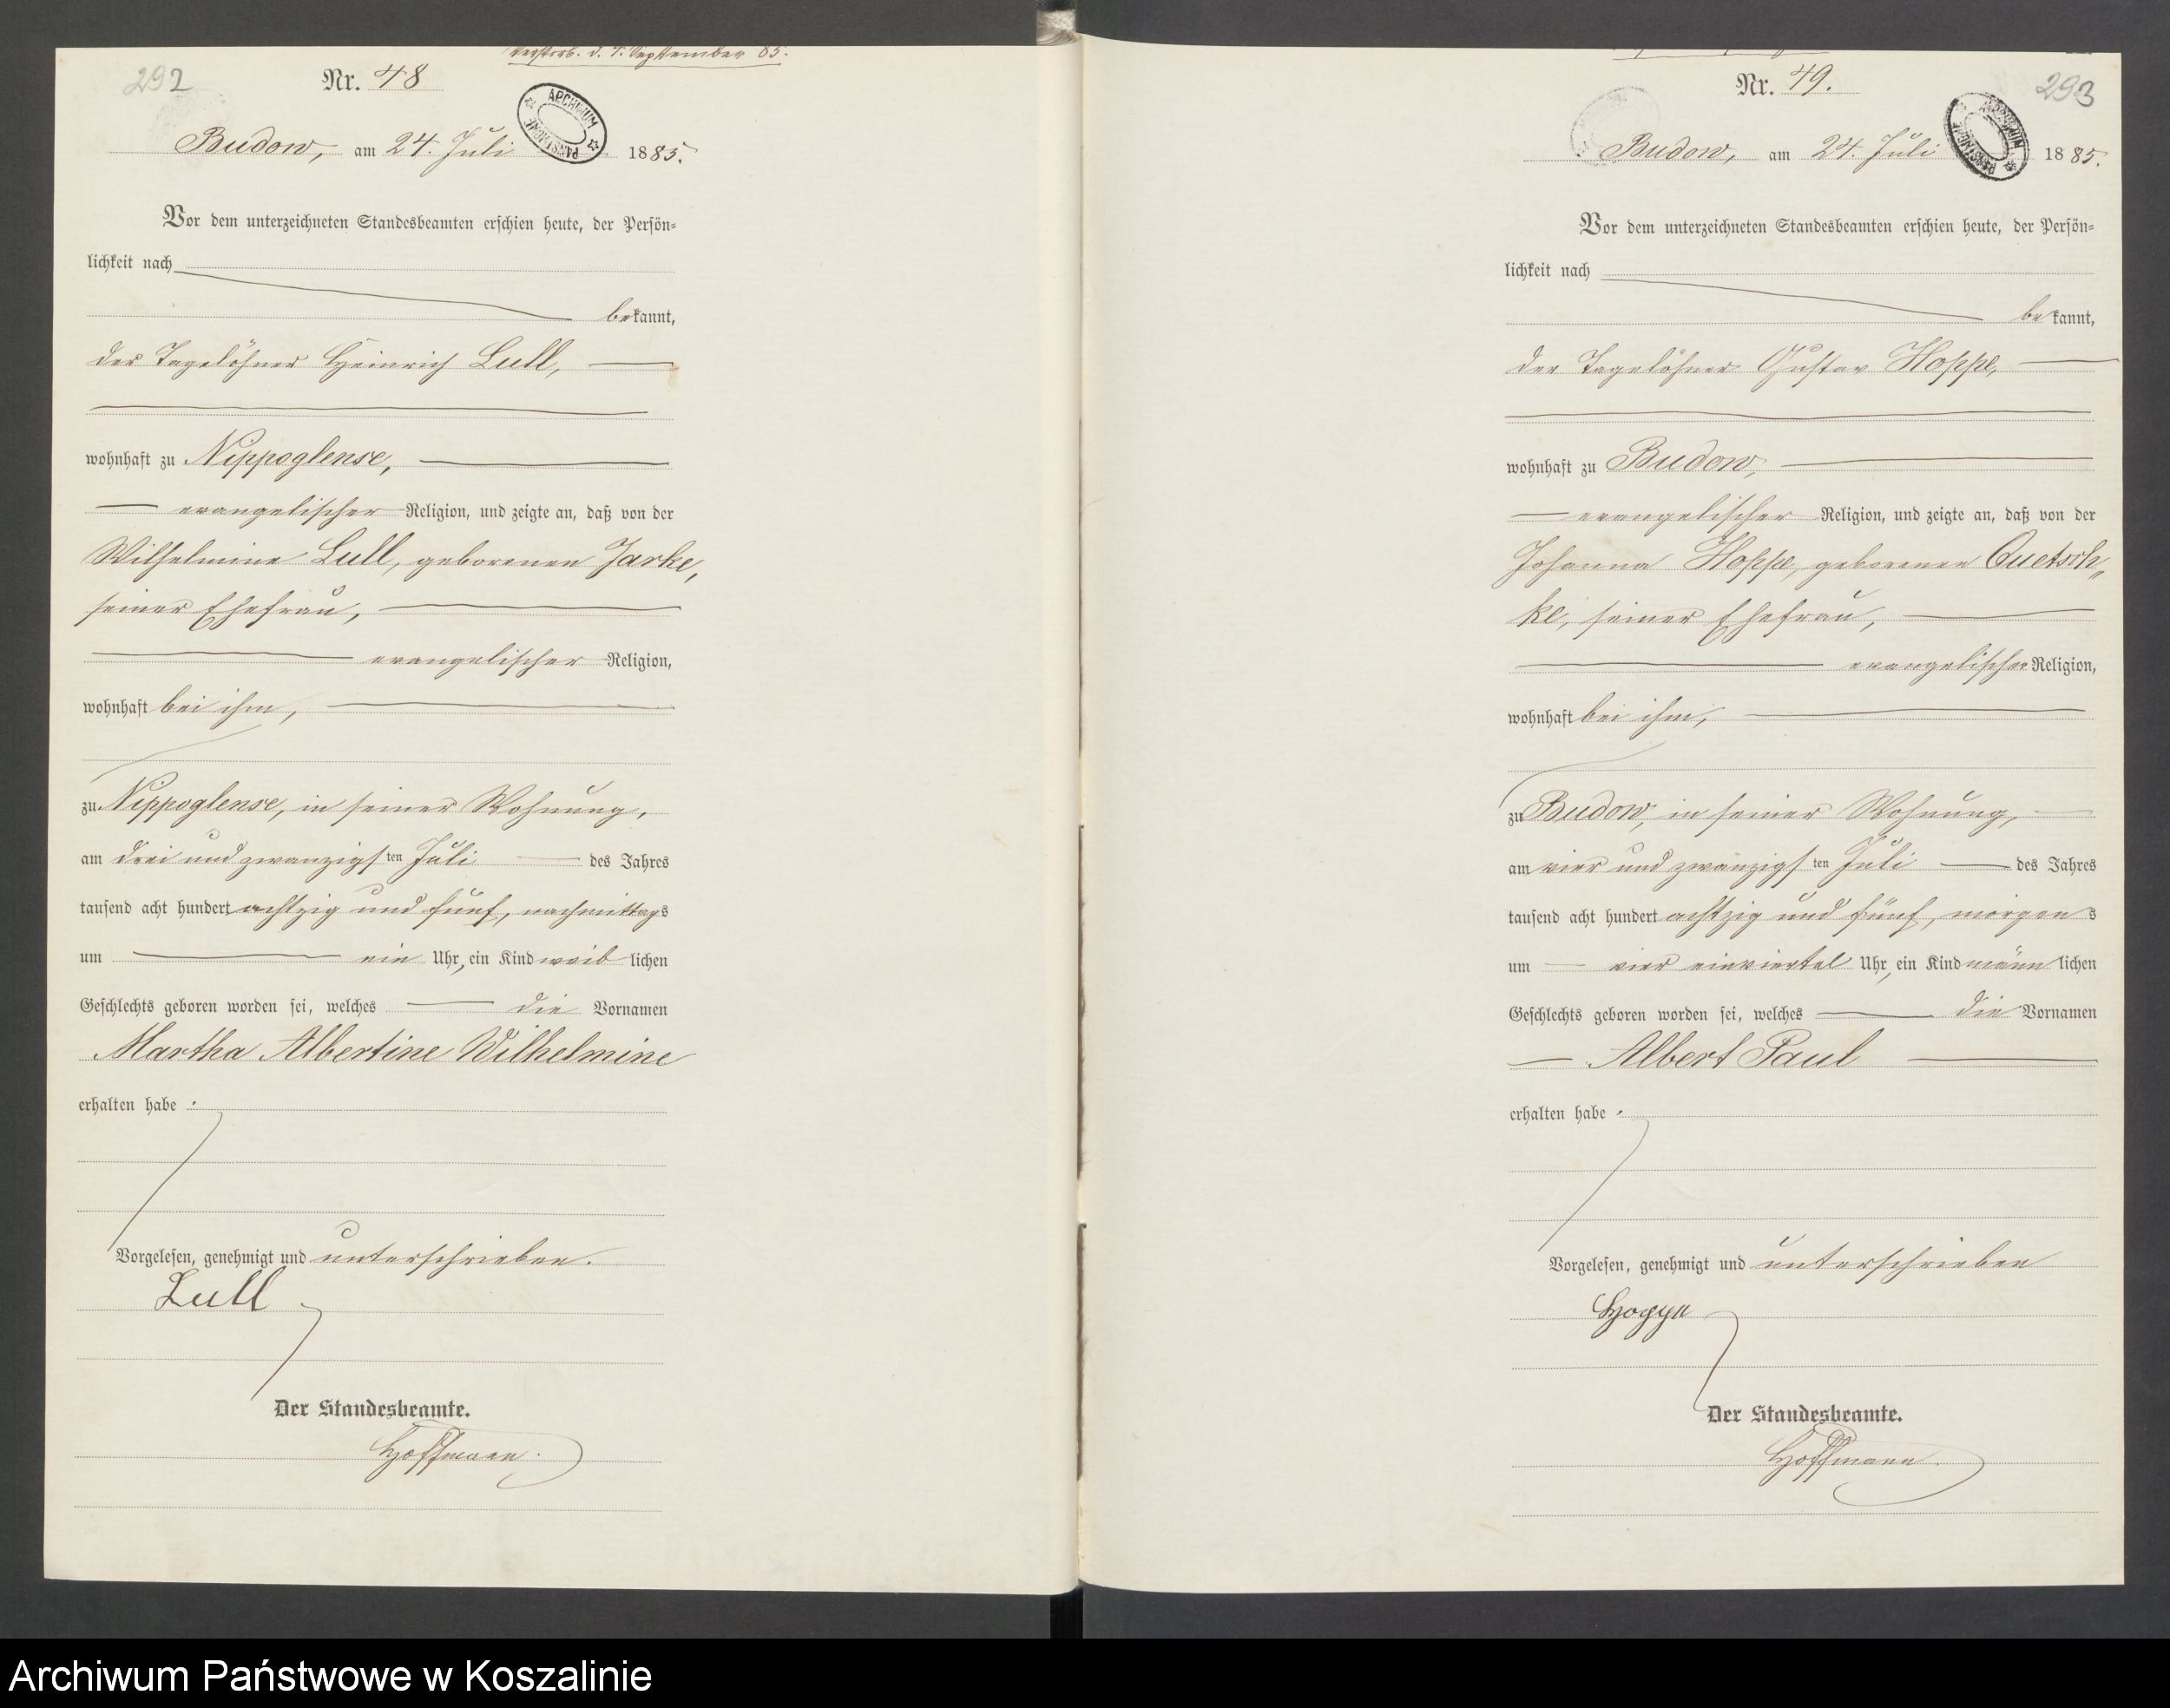 Verstorb. d. 7. September 85.
292
Nr. 48
ARCHIWUM PAŃSTWOWE
Budow, am 24. Juli 1885.
Vor dem unterzeichneten Standesbeamten erschien heute, der Persön=
lichkeit nach
bekannt,
der Tagelöhner Heinrich Lull,
wohnhaft zu Nippoglense,
evangelischer Religion, und zeigte an, daß von der
Wilhelmine Lull, geborenen Jarke,
seiner Ehefrau,
evangelischer Religion,
wohnhaft bei ihm,
zu Nippoglense, in seiner Wohnung,
am drei und zwanzigsten Juli des Jahres
tausend acht hundert achtzig und fünf, nachmittags
um ein Uhr, ein Kind weiblichen
Geschlechts geboren worden sei, welches die Vornamen
Martha Albertine Wilhelmine
erhalten habe.
Vorgelesen, genehmigt und unterschrieben.
Lull
Der Standesbeamte.
Hoffmann.
293
Nr. 49.
ARCHIWUM PAŃSTWOWE
Budow, am 24. Juli 1885.
Vor dem unterzeichneten Standesbeamten erschien heute, der Persön=
lichkeit nach
bekannt,
der Tagelöhner Gustav Hoppe,
wohnhaft zu Budow,
evangelischer Religion, und zeigte an, daß von der
Johanna Hoppe, geborenen Quetsch„
ke, seiner Ehefrau,
evangelischer Religion,
wohnhaft bei ihm,
zu Budow, in seiner Wohnung,
am vier und zwanzigsten Juli des Jahres
tausend acht hundert achtzig und fünf, morgens
um vier einviertel Uhr, ein Kind männlichen
Geschlechts geboren worden sei, welches die Vornamen
Albert Paul
erhalten habe.
Vorgelesen, genehmigt und unterschrieben
Hoppe
Der Standesbeamte.
Hoffmann.
Archiwum Państwowe w Koszalinie